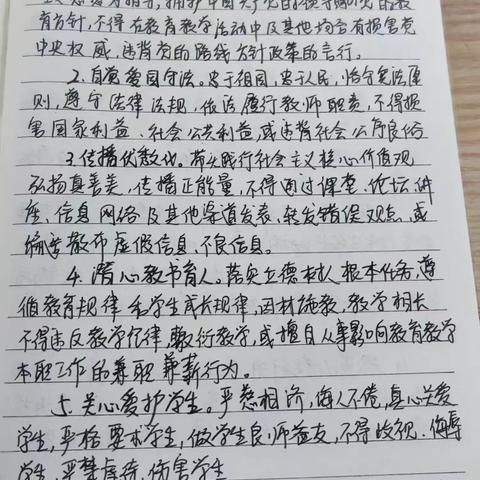 为指导，拥护中国共产党的领导，贯彻党的教
育方针，不得在教育教学活动中及其他场合有损害党
中央权威，违背党的路线方针政策的言行。
2、自觉爱国守法。忠于祖国，忠于人民，恪守宪法原
则，遵守法律法规，依法履行教师职责，不得损
害国家利益、社会公共利益，或违背社会公序良俗
3.传播优秀文化。带头践行社会主义核心价值观
弘扬真善美，传播正能量，不得通过课堂、论坛、讲
座、信息网络及其他渠道发表、转发错误观点，或
编造散布虚假信息、不良信息。
4、潜心教书育人。落实立德树人根本任务，遵
循教育规律和学生成长规律，因材施教，教学相长
不得违反教学纪律，敷衍教学，或擅自从事影响教育教学
本职工作的兼职兼薪行为。
5、关心爱护学生。严慈相济，诲人不倦，真心关爱
学生，严格要求学生，做学生良师益友，不得歧视、侮辱
学生，严禁虐待、伤害学生